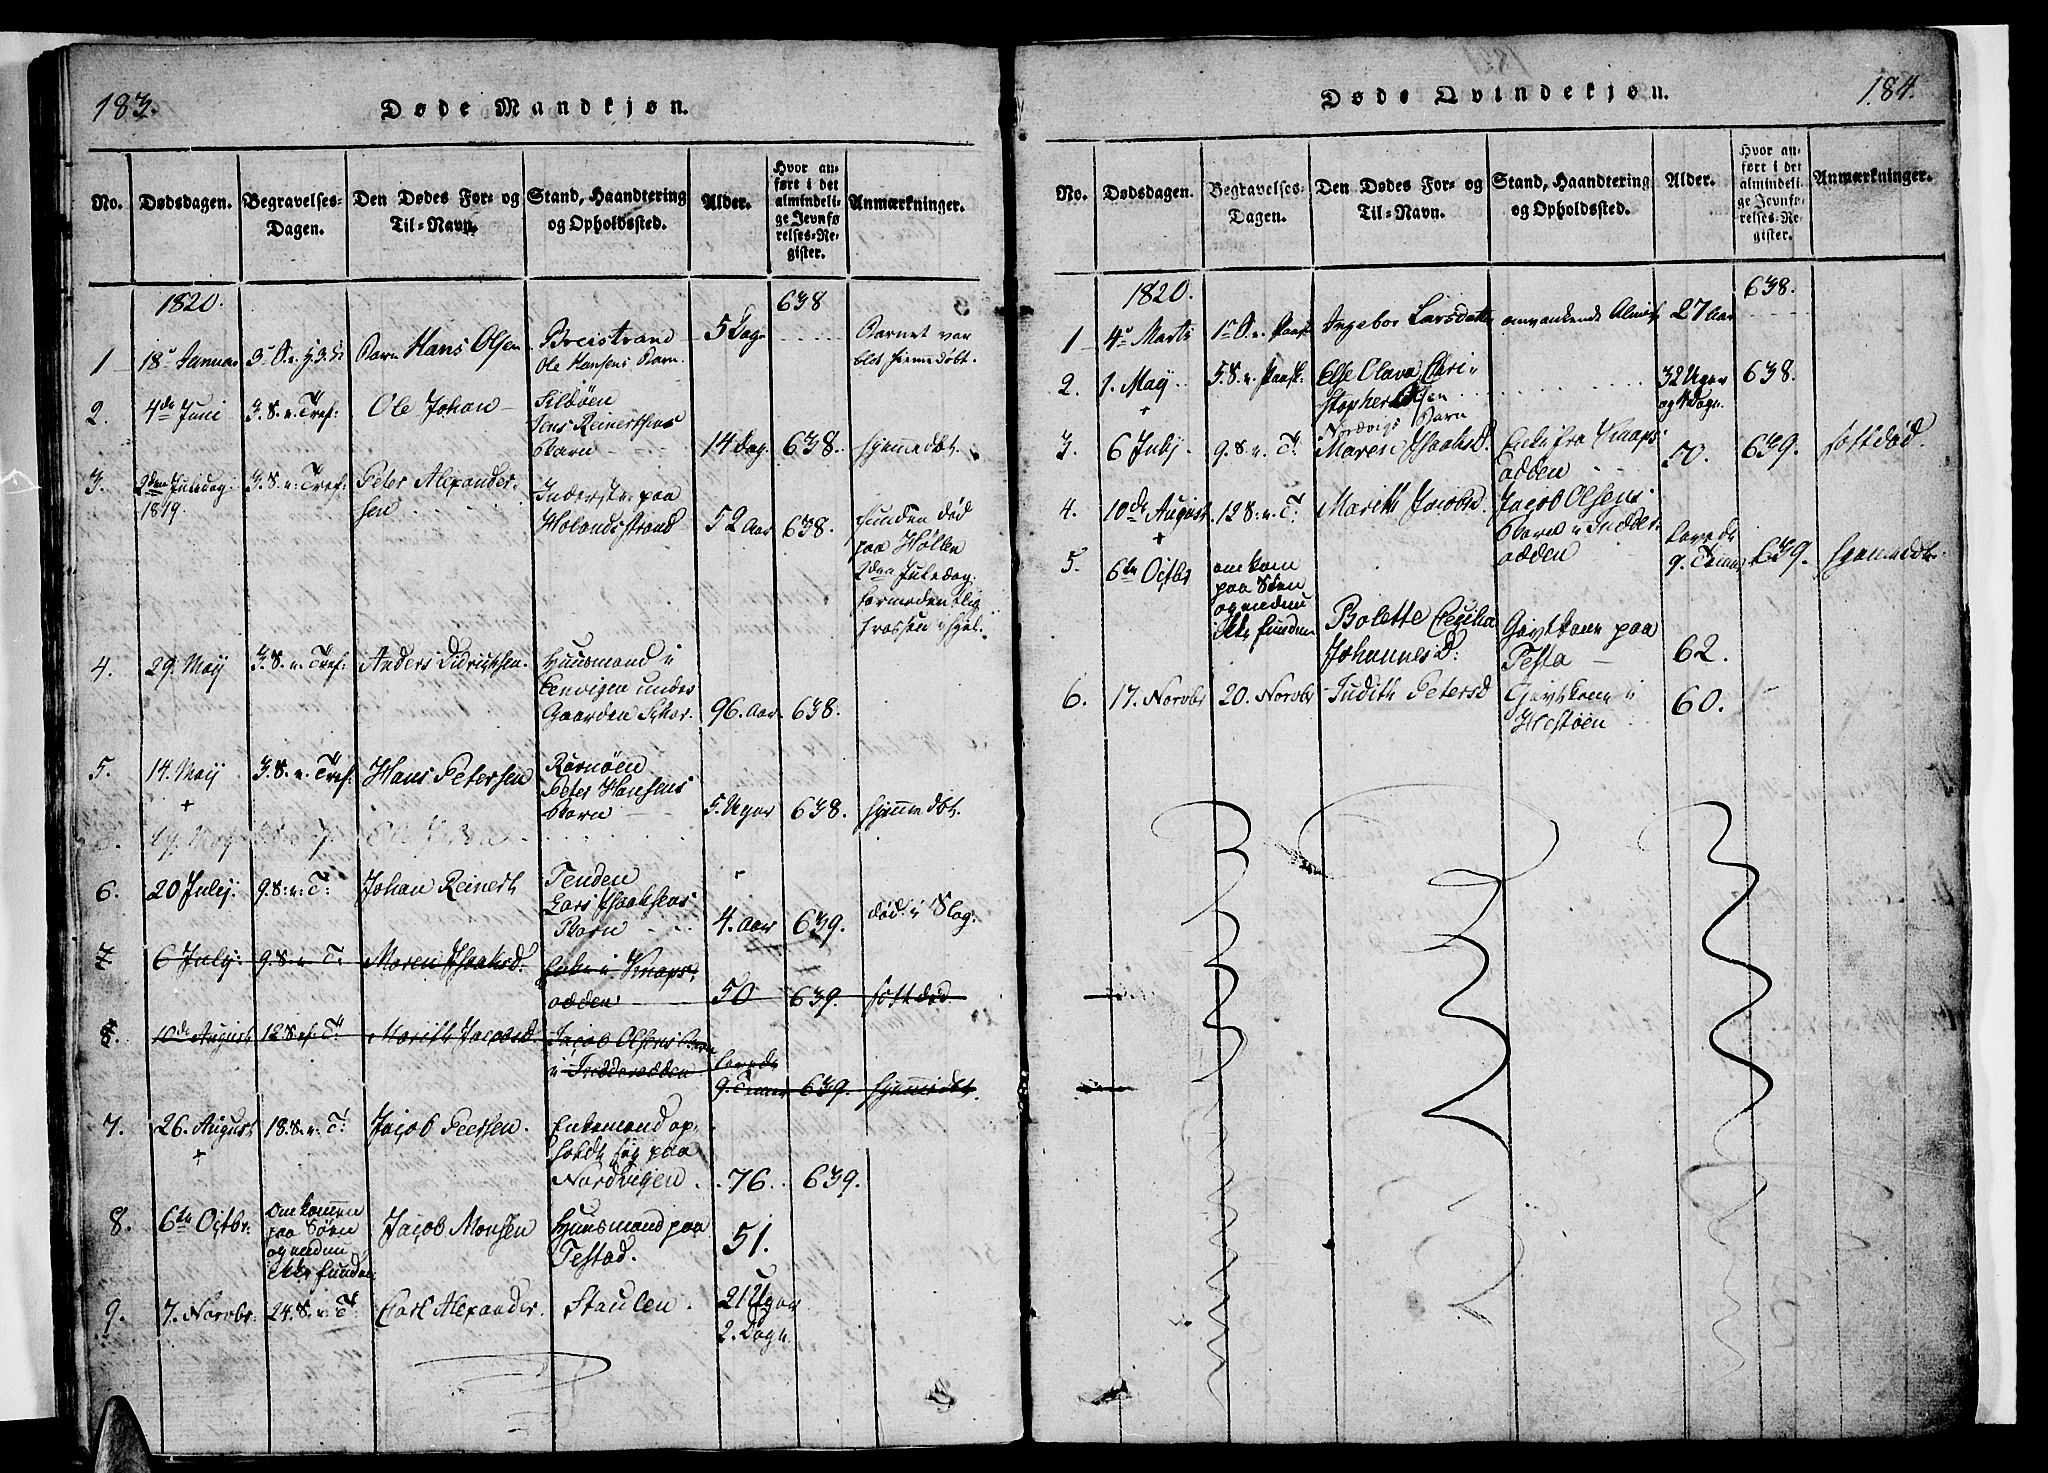 183.
Døde Mandkjøn.
No.
Dødsdagen.
Begravelses-
Dagen.
Den Dødes For- og
Til-Navn.
Stand, Haandtering
og Opholdssted.
Alder.
Hvor an-
ført i det
almindeli-
ge Jevnfø-
relses-Re-
gister.
Anmærkninger.
1820.
638
1
18. Januar
Barn Hans Olsen
Breistrand
Ole Hansens Barn.
5 Dage
Barnet var
blot hiemedøbt.
2.
4de Juni
3. S. e. Tref:
Ole Johan
Jens Reinertsens
Barn
14 Dag.
638.
hjemmedbt.
3.
2den Juledag
1819.
3. S. e. Tref:
Peter Alexander-
sen
Inderste paa
Holandsstrand
52 Aar
638.
funden død
paa Høllen
2den Juledag.
4.
29. Maij
3. S. e. Tref:
Anders Didrichsen.
Huusmand i
Gaarden
96. Aar.
638.
5.
14. Maij
+
3. S. e. Tref.
Hans Petersen
Rørøen
Peter Hansens
Barn
5. Uger
638.
hjemmedbt.
6.
20 Julij.
9. S. e. T:
Johan Reinert
Tenden
Lars Isaaksens
Barn
4. Aar
639.
død i Slag.
7
6 July.
9. S. e. T:
Maren Isaaksd.
Enke i Knaps-
odden
50
639.
sottdød.
8.
10de August
12. S. ef. T:
Marith Jacobsd.
Jacob Olsens Barn
i Inderodden
levede
9. Timer
639.
hjemmedbt.
7.
26. August
+
18. S. e. T:
Jacob Peersen.
Enkemand op-
holdt sig paa
Nordvigen
76.
639.
8.
6te Octbr.
omkommen
paa Søen
og endnu
ikke funden
Jacob Monsen
Huusmand paa
Testad.
51.
9.
7. Novbr.
24. S. e. T.
Carl Alexander.
Staulen.
21 Uger
2. Dage.
184.
Døde Qvindekjøn.
No.
Dødsdagen.
Begravelses-
Dagen.
Den Dødes For- og
Til-Navn.
Stand, Haandtering
og Opholdssted.
Alder.
Hvor an-
ført i det
almindeli-
ge Jevnfø-
relses-Re-
gister.
Anmærkninger.
1820.
638.
1
4. Marti
Ingebor Larsdatter
omvankende
27 Aar
2.
1. Maij
+
5. S. e. Paask.
Else Olava Chri-
stopher Olsen
Nordvigs Barn
32 Uger
638.
3.
6 July.
9. S. e. T:
Maren Isaaksd.
Enke fra Knaps-
odden
50.
639.
sottdød.
4.
10de August
+
12 S. e. T:
Marith Jacobsd
Jacob Olsens
Barn i Inder-
odden
levede
9. Timer
639.
hjemmedbt.
5.
6te Octbr
omkom
paa Søen
og endnu
ikke funden
Bolette Cecilia
Johannesd:
Givtkone paa
Testa
62.
6.
17. Novbr
20. Novbr
Judith Petersd
Givtkone i
Hestøen
60.